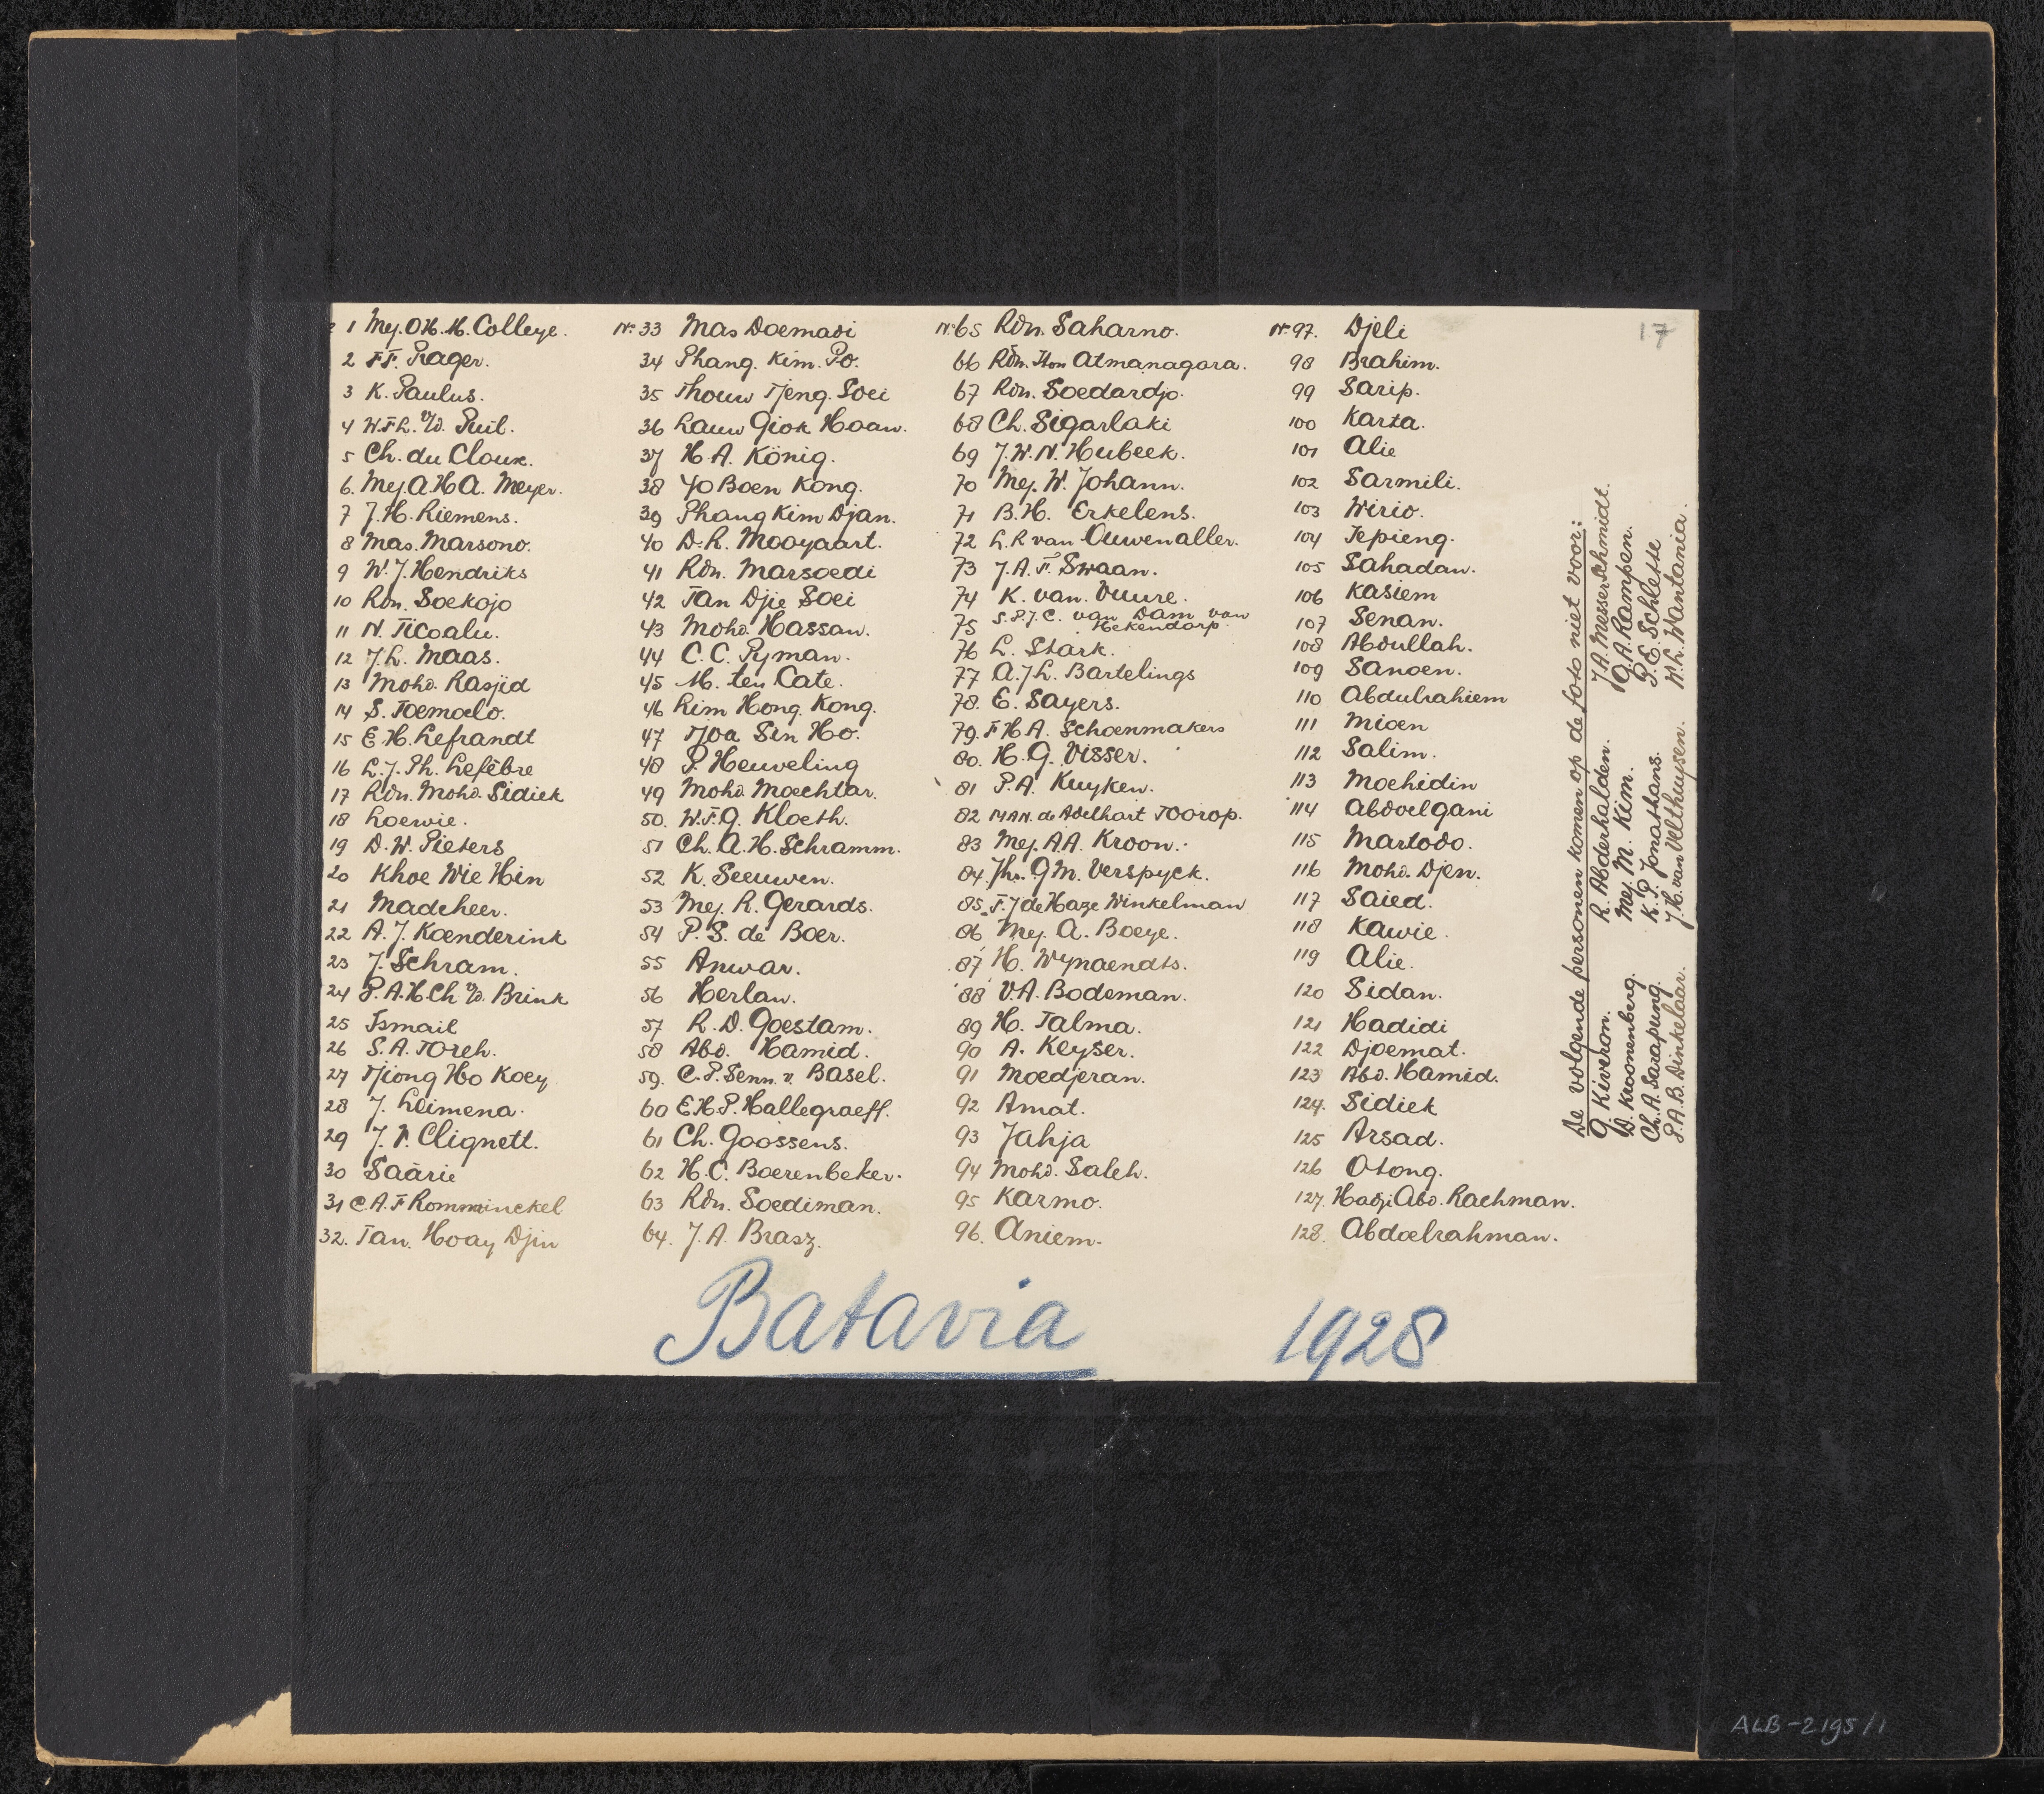 1 Mej. O.H.M. Colleye.
2 F.F. Prager.
3 K. Paulus.
4 W.F.L. v/d. Puil.
5 Ch. du Cloux.
6. Mej. A.H.A. Meyer.
7 J.H. Riemens.
8 Mas. Marsono.
9 W.J. Hendriks
10 Rdn. Soekojo
11 N. Ticoalu.
12 J.L. Maas.
13 Mohd. Rasjid
14 S. Toemolo.
15 E.H. Lefrandt
16 L.J. Ph. Lefèbre
17 Rdn. Mohd. Sidiek
18 Loewie.
19 D.W. Pieters
20 Khoe Wie Hin
21 Madcheer.
22 A.J. Koenderink
23 J. Schram.
24 P.A.H.Ch v/d. Brink
25 Ismail
26 S.A. Toreh.
27 Tjiong Ho Koey
28 J. Leimena.
29 J.V. Clignett.
30 Saärie
31 C.A.F Romminckel
32. Tan. Hoay Djin
Nr. 33 Mas Doemadi
34 Phang. Kim. Po.
35 Thouw Tjeng. Soei
36 Lauw Giok Hoaw.
37 H.A. König.
38 Yo Boen Kong.
39 Phang Kim Djan.
40 D.R. Mooyaart.
41 Rdn. Marsoedi
42 Tan Djie Soei
43 Mohd. Hassan.
44 C.C. Pyman.
45 M. ten Cate.
46 Lim Hong. Kong.
47 Tjoa Sin Ho.
48 P. Heuveling
49 Mohd. Moechtar.
50. W.F.G. Kloeth.
51 Ch. A.H. Schramm.
52 K. Seeuwen.
53 Mej. R. Gerards.
54 P.S. de Boer.
55 Anwar.
56 Herlan.
57 R.D. Goestam.
58 Abd. Hamid.
59. C.P. Senn. v. Basel.
60 E.H.P. Hallegraeff.
61 Ch. Goossens.
62 H.C. Boerenbeker.
63 Rdn. Soediman.
64. J.A. Brasz.
Nr. 65 Rdn. Saharno.
66 Rdn. Hm Atmanagara.
67 Rdn. Soedardjo.
68 Ch. Sigarlaki
69 J.W.N. Hubeek.
70 Mej. W. Johann.
71 B.H. Erkelens.
72 L.R van Ouwenaller.
73 J.A.F. Swaan.
74 K. van. Vuure.
75 S.P.J.C. van Dam van
Hekendorp.
76 L. Stark.
77 A.J.L. Bartelings
78. E. Sayers.
79. F H A. Schoenmakers
80. H.G. Visser.
81 P.A. Kuyken.
82 M A N. de Adelhart Toorop.
83 Mej. A.A. Kroon.
84. Jhr. G.M. Verspyck.
85. F.J de Haze Winkelman
86 Mej. A. Boeye.
87 H. Wynaendts.
88 V.A. Bodeman.
89 H. Talma.
90 A. Keyser.
91 Moedjeran.
92 Amat.
93 Jahja
94 Mohd. Saleh.
95 Karmo.
96. Aniem.
Nr. 97. Djeli
98 Brahim.
99 Sarip.
100 Karta.
101 Alie
102 Sarmili.
103 Wirio.
104 Tepieng.
105 Sahadan.
106 Kasiem
107 Senan.
108 Abdullah.
109 Sanoen.
110 Abdulrahiem
111 Mioen
112 Salim.
113 Moehidin
114 Abdoelgani
115 Martodo.
116 Mohd. Djen.
117 Saied.
118 Kawie.
119 Alie.
120 Sidan.
121 Hadidi
122 Djoemat.
123 Abd. Hamid.
124. Sidiek
125 Arsad.
126 Otong.
127. Hadji Abd. Rachman.
128. Abdoelrahman.
17
De volgende personen komen op de foto niet voor:
G. Kiveron. R. Abderhalden. J.A. Messerschmidt.
D. Kroonenburg. Mej. M. Kim. G.A. Rampen.
Ch. A. Sarapung. K.P. Jonathans. P.E. Schlette
P.A.B. Dinkelaar. J.H. van Velthuysen. W.L. Wantania.
Batavia 1928
ALB-2195/1